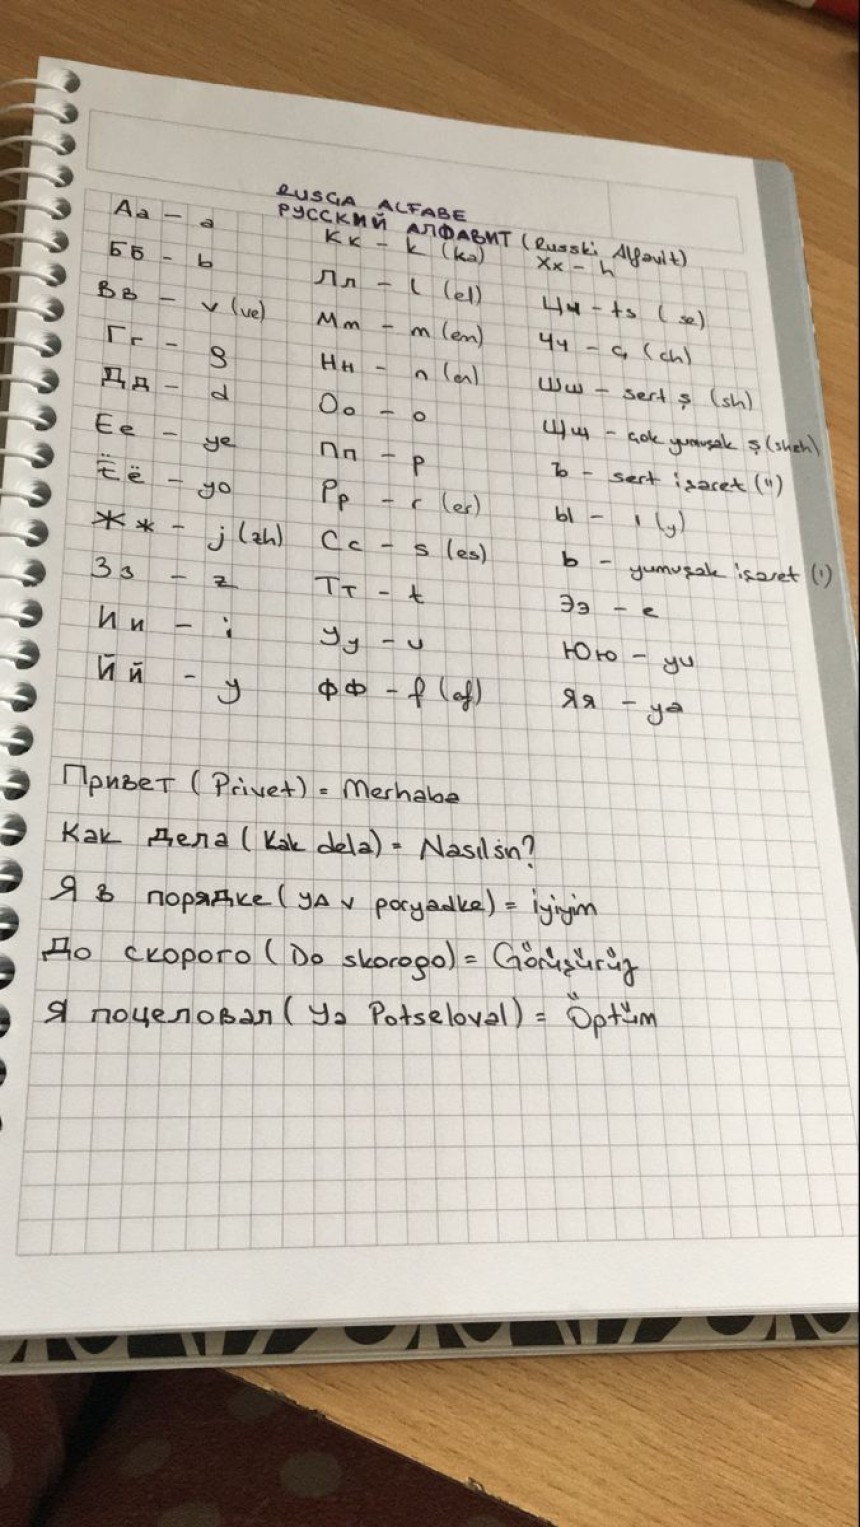 RUSÇA ALFABE
РУССКИЙ АЛФАВИТ (Russki Alfavit)
Аа - a
Бб - b
Вв - v (ve)
Гг - g
Дд - d
Ее - ye
Ёё - yo
Жж - j (zh)
Зз - z
Ии - i
Йй - y
Кк - k (ka)
Лл - l (el)
Мм - m (em)
Нн - n (en)
Оо - o
Пп - p
Рр - r (er)
Сс - s (es)
Тт - t
Уу - u
Фф - f (ef)
Хх - h
Цц - ts (se)
Чч - ç (ch)
Шш - sert ş (sh)
Щщ - çok yumuşak ş (shch)
Ъ - sert işaret (")
Ы - ı (y)
Ь - yumuşak işaret (')
Ээ - e
Юю - yu
Яя - ya
Привет (Privet) = Merhaba
Как дела (Kak dela) = Nasılsın?
Я в порядке (ya v poryadke) = iyiyim
До скорого (Do skorogo) = Görüşürüz
Я поцеловал (Ya Potseloval) = Öptüm